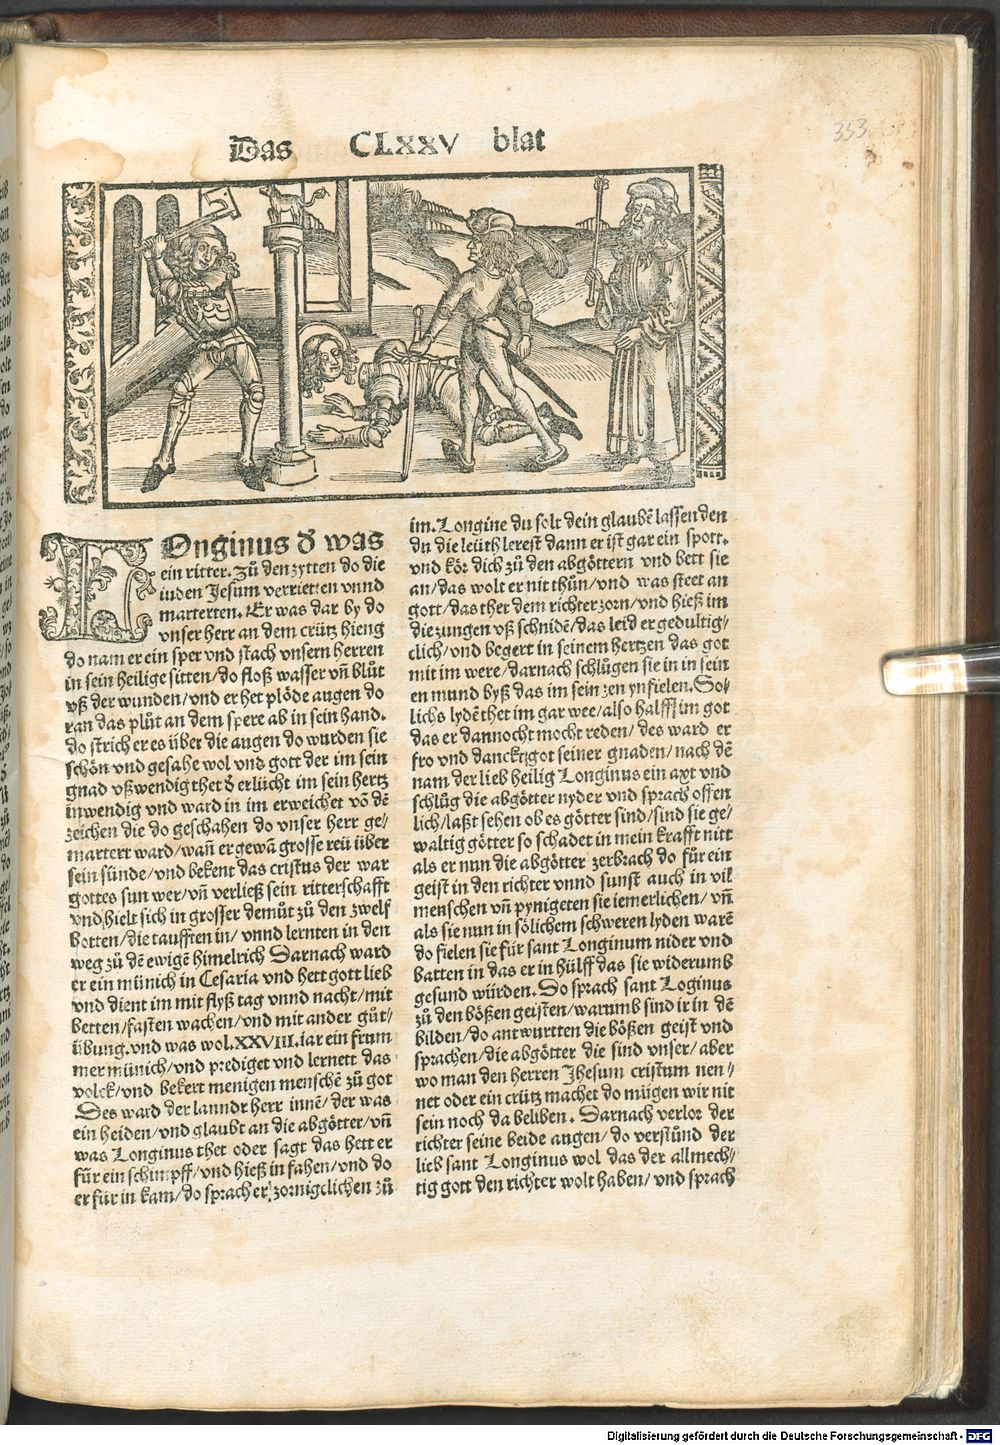 Das CLXXV blat
353
LOnginus d̕ was
ein ritter. Zů den zytten do die
iuden Jesum verrietten vnnd
marterten. Er was dar by do
vnser herr an dem crütz hieng
do nam er ein sper vnd stach vnsern herren
in sein heilige sitten/do floß wasser vñ blůt
vß der wunden/vnd er het plöde augen do
ran das plůt an dem spere ab in sein hand.
do strich er es über die augen do wurden sie
schön vnd gesahe wol vnd gott der im sein
gnad vßwendig thet d̕ erlücht im sein hertz
inwendig vnd ward in im erweichet vō dē
zeichen die do geschahen do vnser herr ge/
martert ward/wañ er gewā grosse reü über
sein sünde/vnd bekent das cristus der war
gottes sun wer/vñ verließ sein ritterschafft
vnd hielt sich in grosser demůt zů den zwelf
botten/die taufften in/vnnd lernten in den
weg zů dē ewigē himelrich Darnach ward
er ein münich in Cesaria vnd hett gott lieb
vnd dient im mit flyß tag vnnd nacht/mit
betten/fasten wachen/vnd mit ander gůt/
übung. vnd was wol. XXVIII. iar ein frum
mer münich/vnd prediget vnd lernett das
volck/vnd bekert menigen menschē zů got
Des ward der lanndt herr innē/der was
ein heiden/vnd glaubt an die abgötter/vñ
was Longinus thet oder sagt das hett er
für ein schimpff/vnd hieß in fahen/vnd do
er für in kam/do sprach er zornigclichen zů
im. Longine du solt dein glaubē lassen den
du die leüth lerest dann er ist gar ein spott.
vnd kör dich zů den abgöttern vnd bett sie
an/das wolt er nit thůn/vnd was steet an
gott/das thet dem richter zorn/vnd hieß im
die zungen vß schnidē/das leid er gedultig/
clich/vnd begert in seinem hertzen das got
mit im were/darnach schlůgen sie in in sein
en mund byß das im sein zen ynfielen. So/
lichs lydē thet im gar wee/also halff im got
das er dannocht mocht reden/des ward er
fro vnd danckt got seiner gnaden/nach dē
nam der lieb heilig Longinus ein axt vnd
schlůg die abgötter nyder vnd sprach offen
lich/laßt sehen ob es götter sind/sind sie ge/
waltig götter so schadet in mein krafft nitt
als er nun die abgötter zerbrach do für ein
geist in den richter vnnd sunst auch in vil
menschen vñ pynigeten sie iemerlichen/vñ
als sie nun in sölichem schweren lyden warē
do fielen sie für sant Longinum nider vnd
batten in das er in hülff das sie widerumb
gesund würden. Do sprach sant Loginus
zů den bößen geisten/warumb sind ir in dē
bilden/do antwurtten die bößen geist vnd
sprachen/die abgötter die sind vnser/aber
wo man den herren Jhesum cristum nen//
net oder ein crütz machet do mügen wir nit
sein noch da beliben. Darnach verlor der
richter seine beide augen/do verstůnd der
lieb sant Longinus wol das der allmech//
tig gott den richter wolt haben/vnd sprach
Digitalisierung gefördert durch die Deutsche Forschungsgemeinschaft - DFG